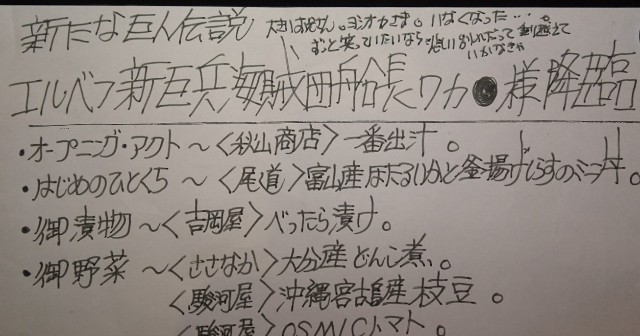 新たな巨人伝説
大きいおばさん。ヨシオかさま。いなくなった…。
ずっと笑っていたいなら悲しいおわれだって乗り越えて
いかなきゃ
エルベフ新巨兵海賊団船長ワカ●様降臨
・オープニング・アクト～〈秋山商店〉一番出汁。
・はじめのひとくち～〈尾道〉富山産ほたるいかと釜揚げしらすのミニ丼。
・御漬物～〈吉岡屋〉べったら漬け。
・御野菜～〈ささなか〉大分産どんこ煮。
〈駿河屋〉沖縄宮古島産枝豆。
〈駿河屋〉OSMICトマト。